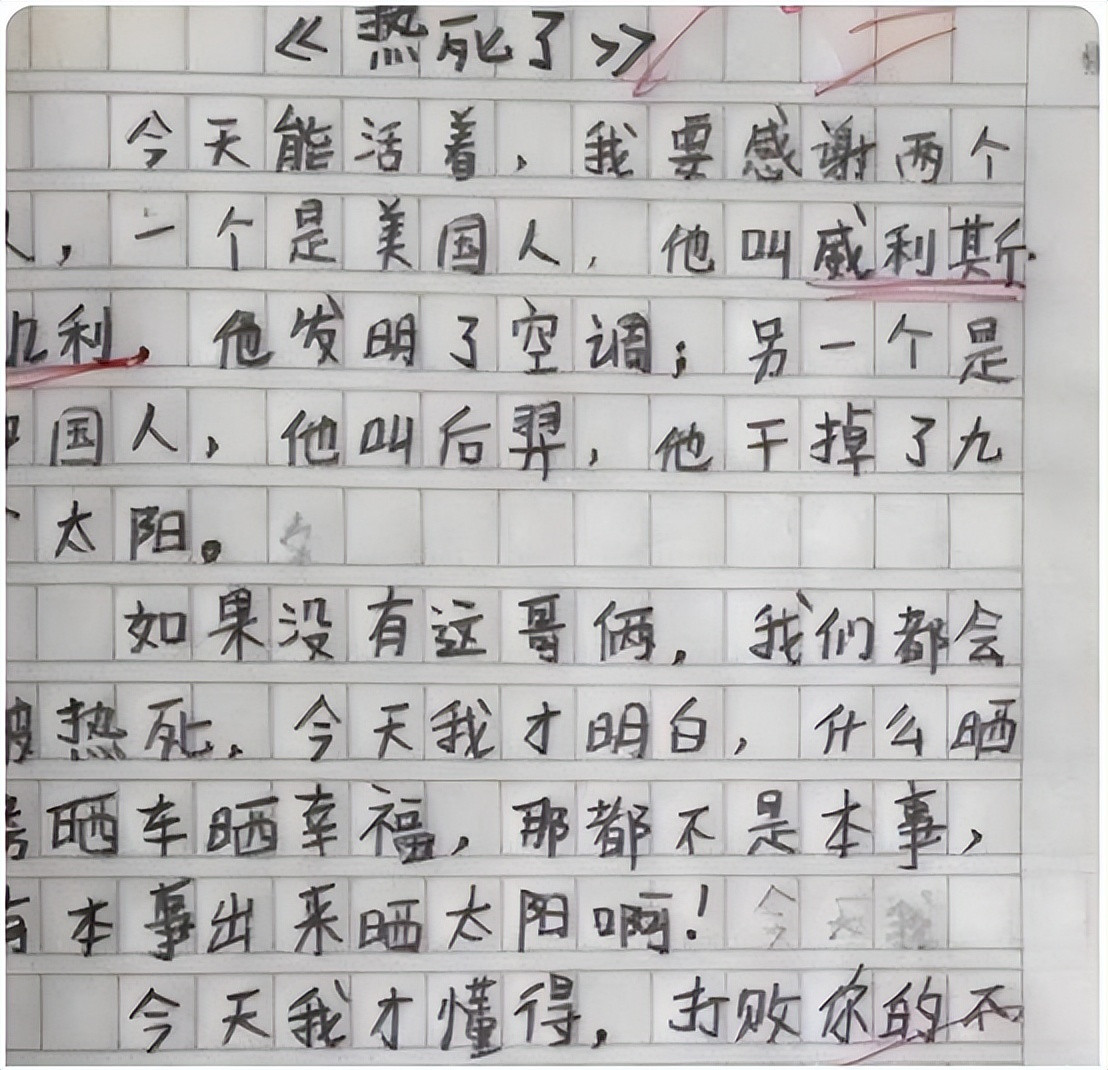 《热死了》
今天能活着，我要感谢两个
人，一个是美国人，他叫威利斯
几利，他发明了空调；另一个是
中国人，他叫后羿，他干掉了九
个太阳。
如果没有这哥俩，我们都会
被热死，今天我才明白，什么晒
晒车晒幸福，那都不是本事，
有本事出来晒太阳啊！
今天我才懂得，打败你的不